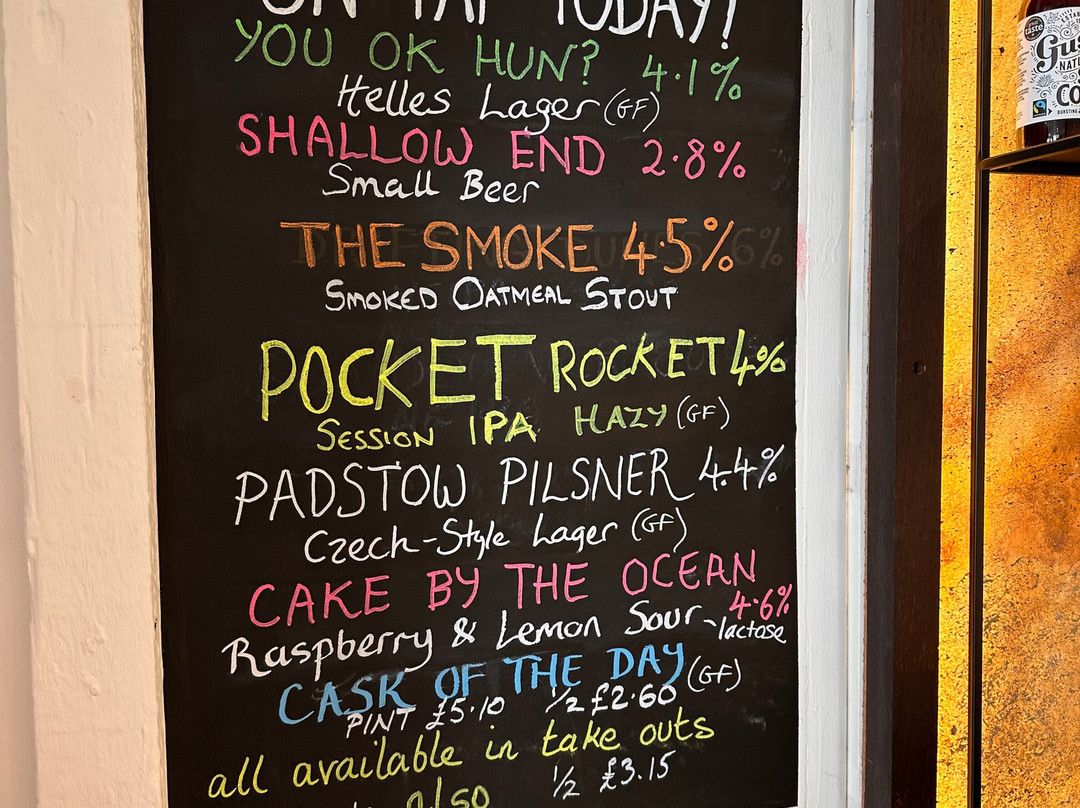 ON TAP TODAY!
YOU OK HUN? 4.1%
Helles Lager (GF)
SHALLOW END 2.8%
Small Beer
THE SMOKE 4.5%
SMOKED OATMEAL STOUT
POCKET ROCKET 4%
SESSION IPA HAZY (GF)
PADSTOW PILSNER 4.4%
Czech-Style Lager (GF)
CAKE BY THE OCEAN
4.6%
Raspberry & Lemon Sour - lactose
CASK OF THE DAY (GF)
PINT £5.10 1/2 £2.60
all available in take outs
1/2 £3.15
also